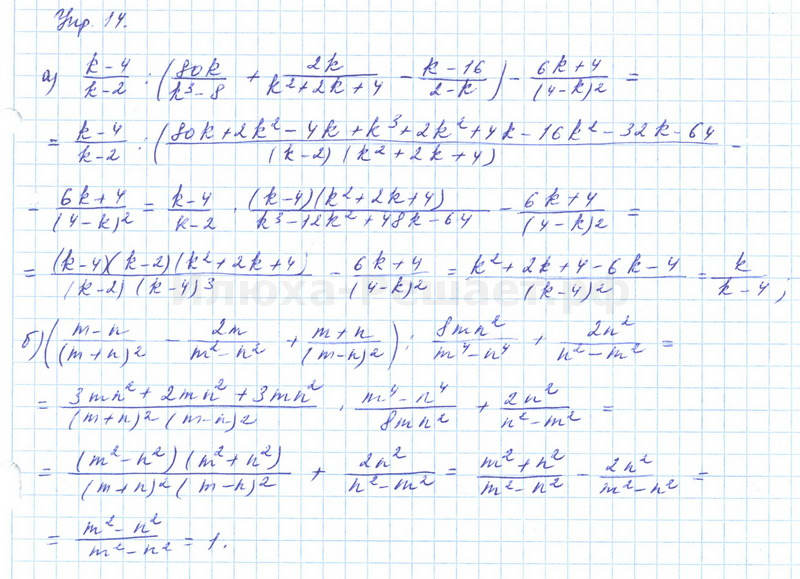 Упр. 14.
а) (k-4)/(k-2) : (80k/(k³-8) + 2k/(k²+2k+4) - (k-16)/(2-k)) - (6k+4)/(4-k)² =
= (k-4)/(k-2) : (80k+2k²-4k+k³+2k²+4k-16k²-32k-64)/((k-2)(k²+2k+4) -
- (6k+4)/(4-k)² = (k-4)/(k-2) · (k-4)(k²+2k+4)/(k³-12k²+48k-64) - (6k+4)/(4-k)² =
= (k-4)(k-2)(k²+2k+4)/((k-2)(k-4)³) - (6k+4)/(4-k)² = (k²+2k+4-6k-4)/(k-4)² = k/(k-4);
б) ((m-n)/(m+n)² - 2m/(m²-n²) + (m+n)/(m-n)²) : 8mn²/(m⁴-n⁴) + 2n²/(n²-m²) =
= (3mn²+2mn²+3mn²)/((m+n)²(m-n)²) · (m⁴-n⁴)/8mn² + 2n²/(n²-m²) =
= (m²-n²)(m²+n²)/((m+n)²(m-n)²) + 2n²/(n²-m²) = (m²+n²)/(m²-n²) - 2n²/(m²-n²) =
= (m²-n²)/(m²-n²) = 1.